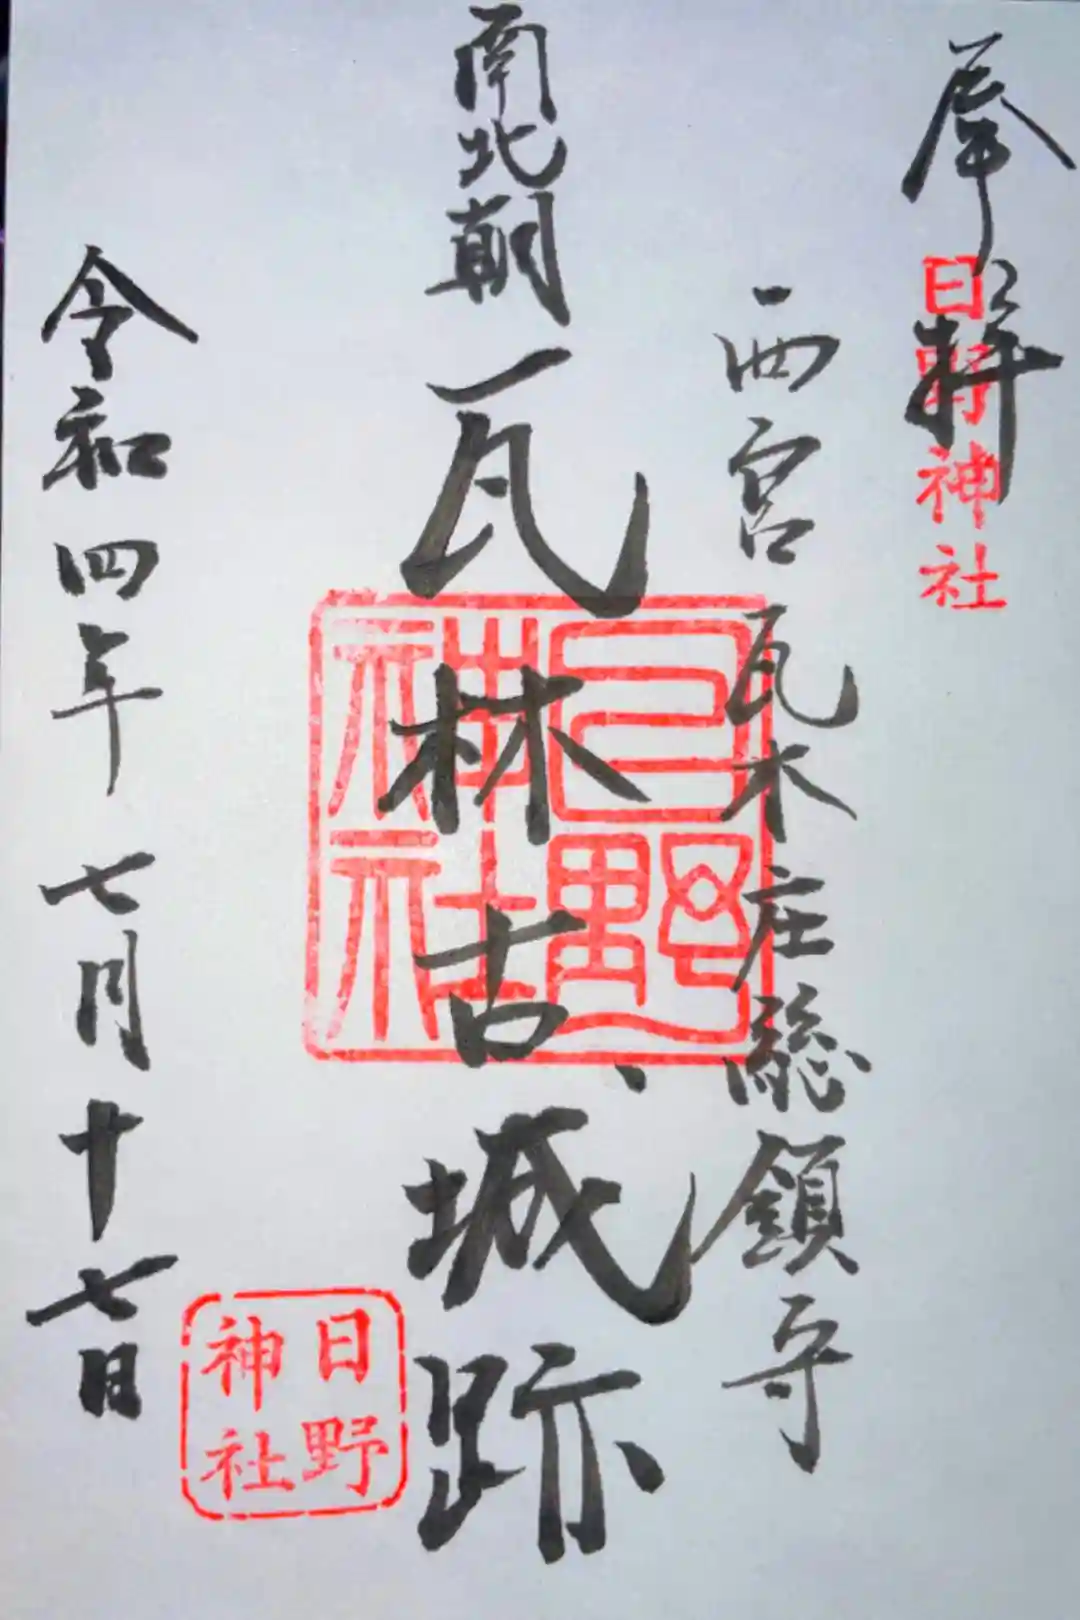 奉拝
日野神社
西宮瓦木庄総鎮守
南北朝瓦林古城跡
日野神社
令和四年七月十七日
日野神社